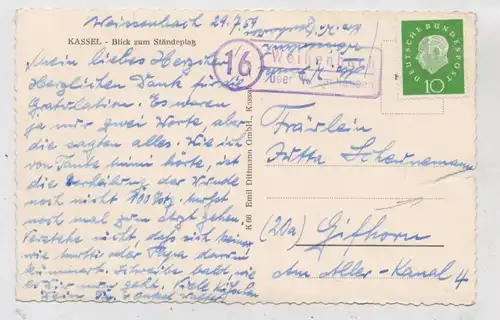 Weissenbach 29.7.59
KASSEL - Blick zum Ständeplatz
Mein liebes Herzchen
Herzlichen Dank für die
Gratulation. Es waren
ja nur zwei Worte, aber
die sagten alles. Wie ich
von Tante Mimi hörte, ist
die Verheilung der Wunde
noch nicht 100%ig.
noch mal zum Arzt gehen.
Verstehe nicht, dass sich keiner
wie Mutti oder Papa darum
kümmert. Schreibe bald, wie
es Dir geht. Viele
16
Weißenbach
über
DEUTSCHE BUNDESPOST
10
K 66 Emil Dittmann GmbH., Kassel
Fräulein
Jutta Scheunemann
(20a) Gifhorn
Am Aller-Kanal 4